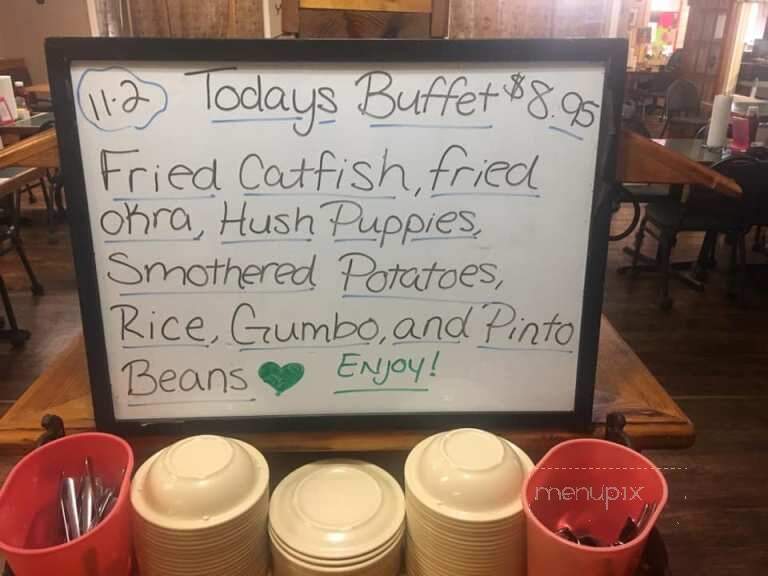 11·2 Todays Buffet $8.95
Fried Catfish, fried
okra, Hush Puppies,
Smothered Potatoes,
Rice, Gumbo, and Pinto
Beans Enjoy!
menupix